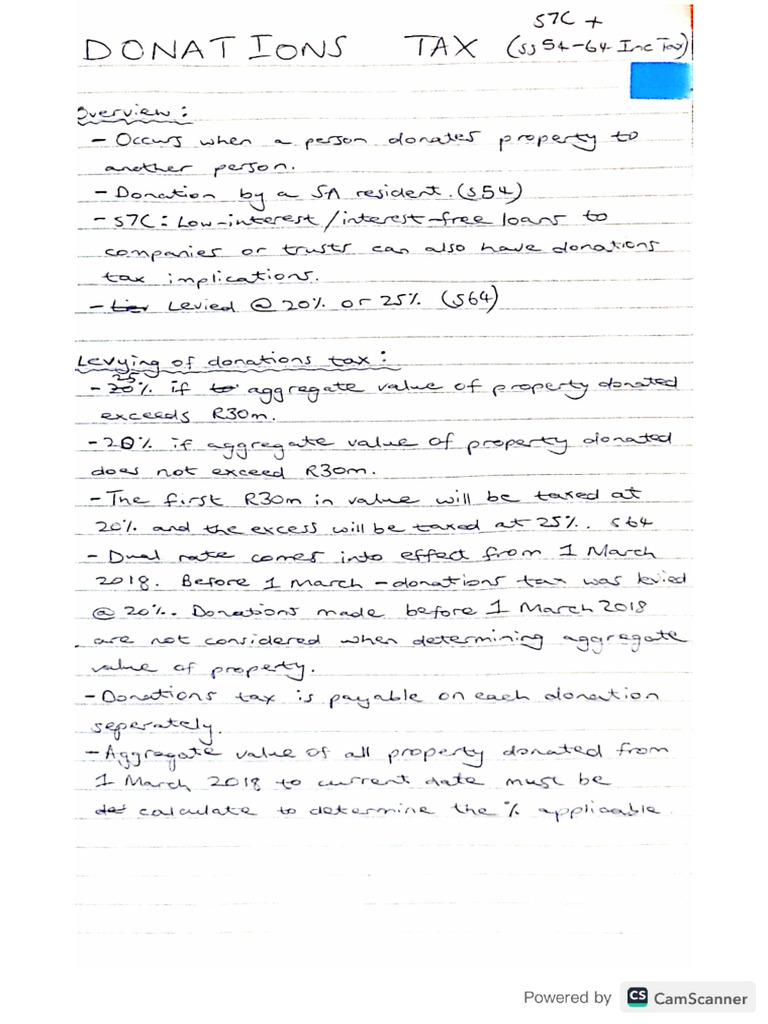 S7C +
DONATIONS TAX (ss 54-64 Inc Tax)
Overview:
- Occurs when a person donates property to
another person.
- Donation by a SA resident. (s54)
- S7C: Low-interest/interest-free loans to
companies or trusts can also have donations
tax implications.
- Levied @ 20% or 25% (s64)
Levying of donations tax:
- 25% if aggregate value of property donated
exceeds R30m.
- 20% if aggregate value of property donated
does not exceed R30m.
- The first R30m in value will be taxed at
20% and the excess will be taxed at 25%. s64
- Dual rate comes into effect from 1 March
2018. Before 1 March - donations tax was levied
@ 20%. Donations made before 1 March 2018
are not considered when determining aggregate
value of property.
- Donations tax is payable on each donation
seperately.
- Aggregate value of all property donated from
1 March 2018 to current date must be
calculate to determine the % applicable.
Powered by CS CamScanner